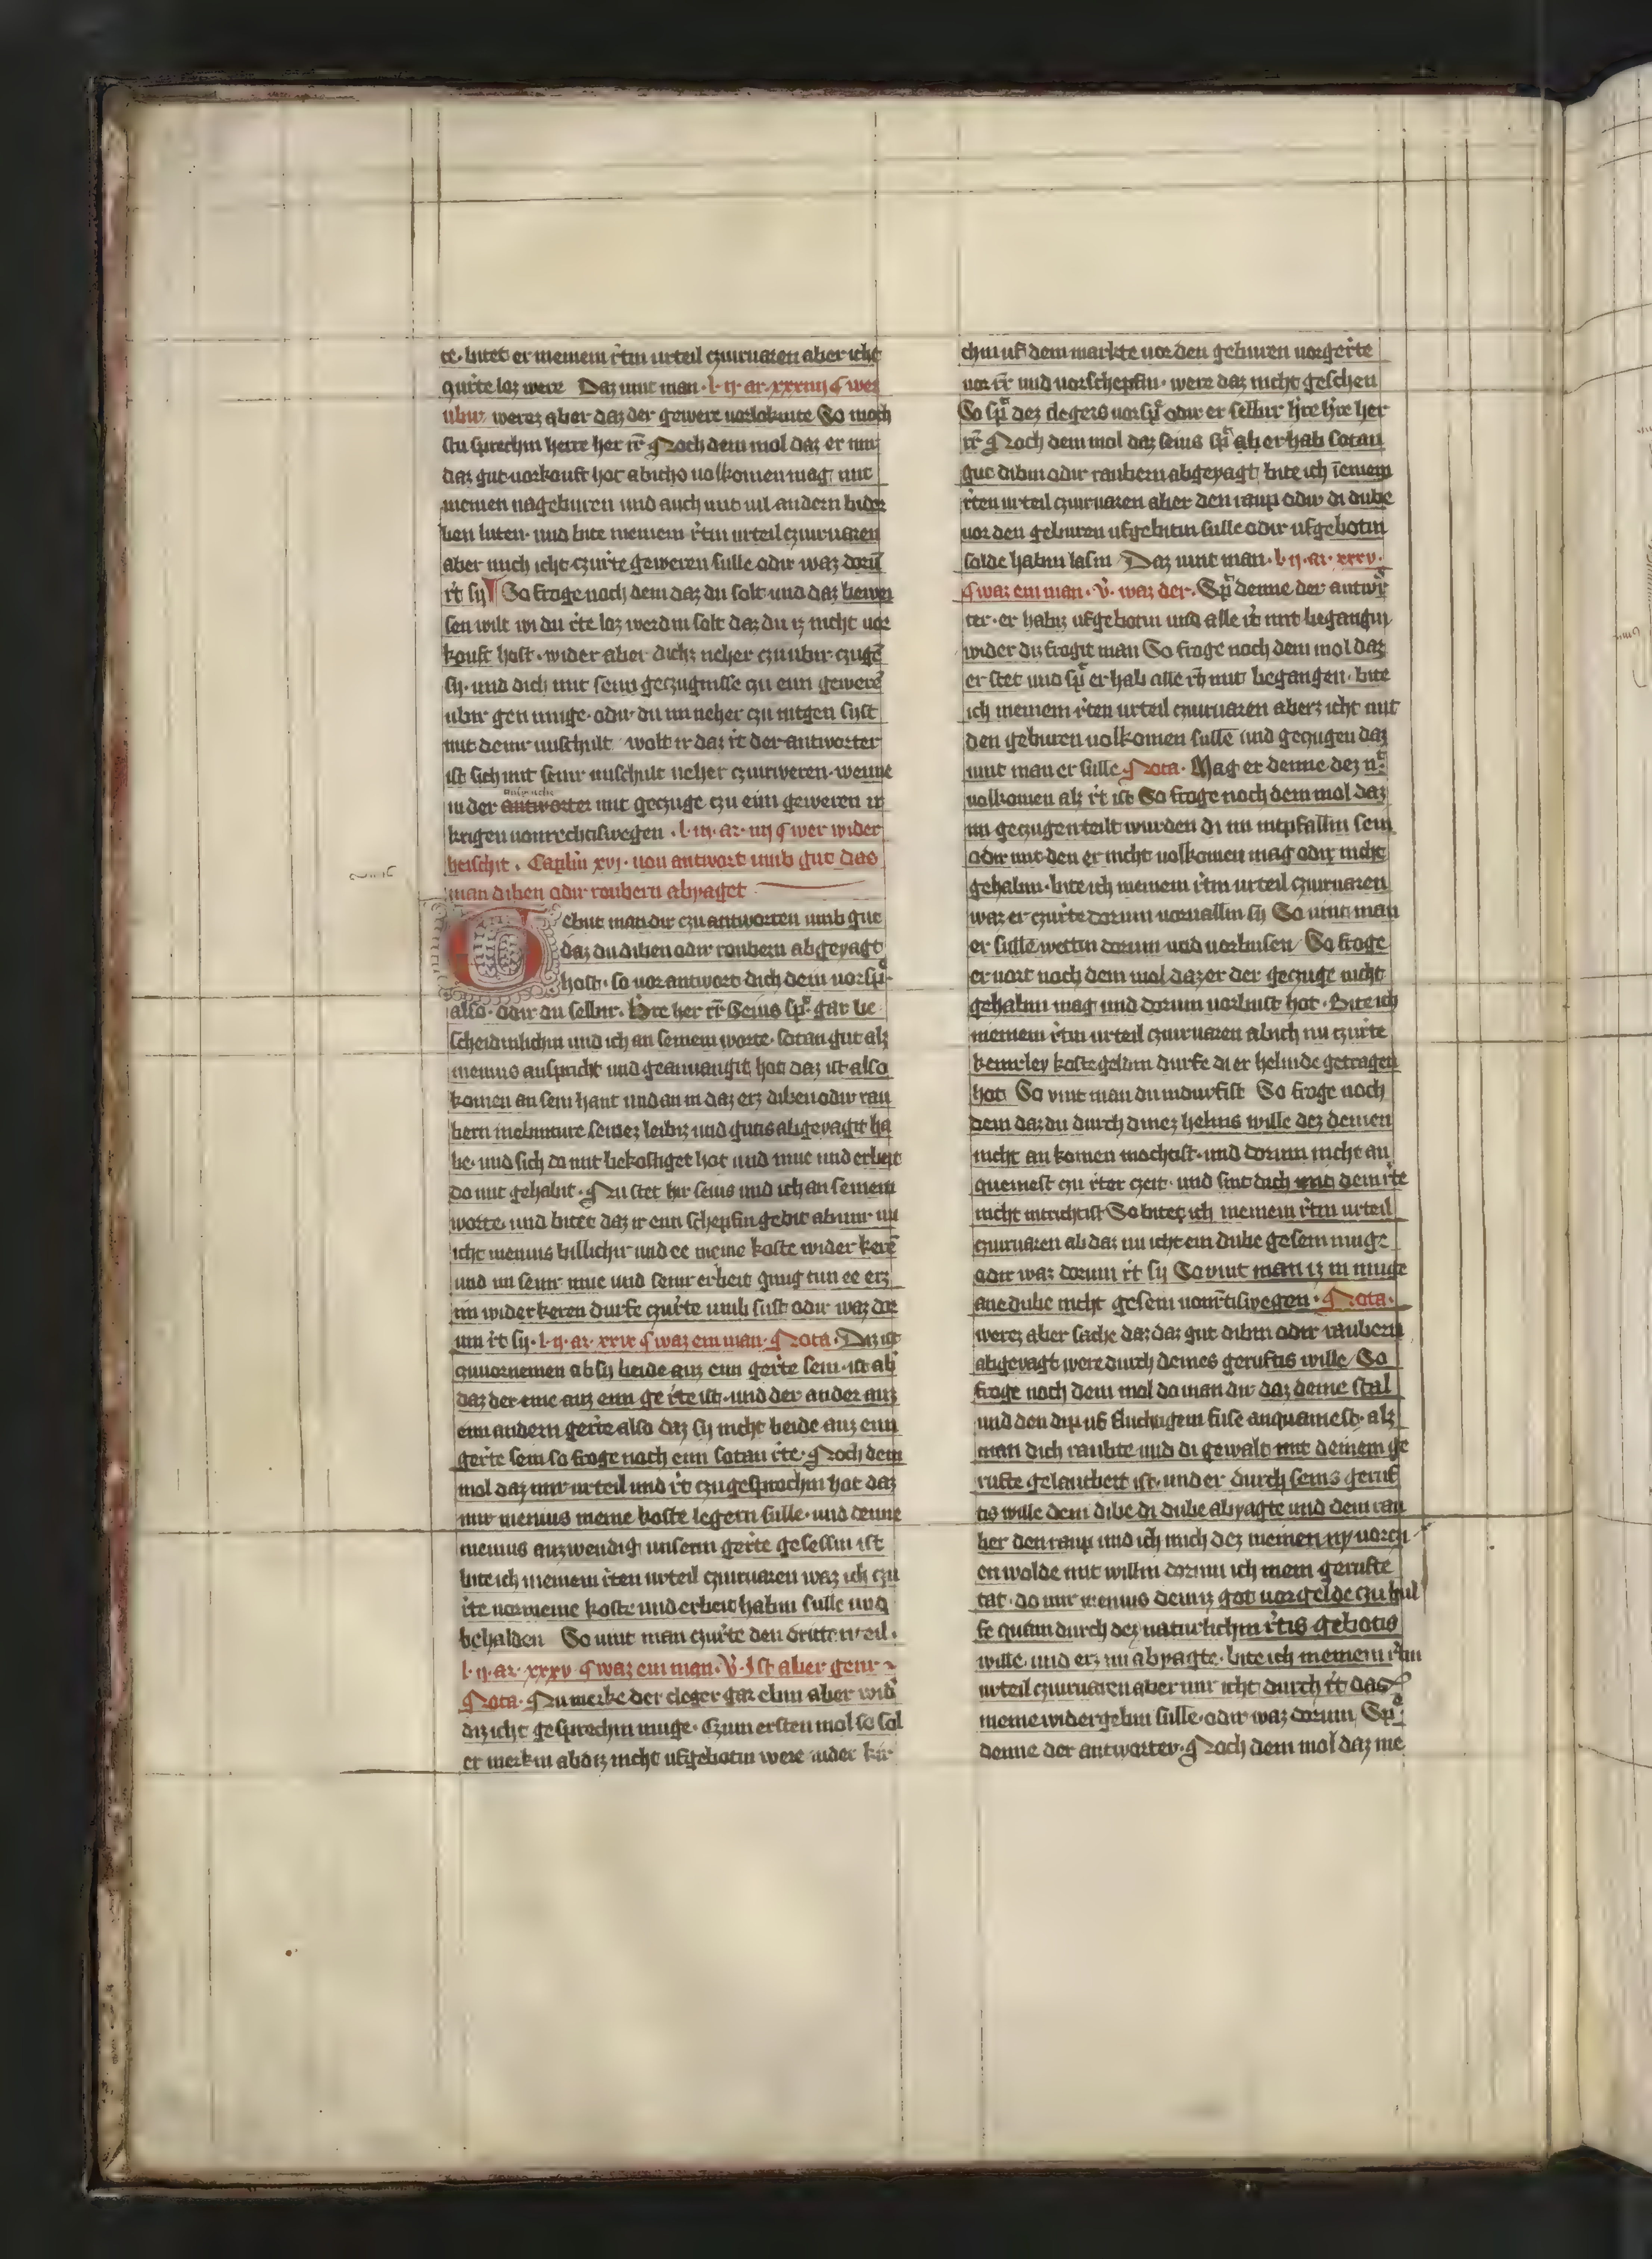 te· bitet er meinem rchtin urteil czuiruaren aber icht
czurchte loz were Daz vint man · l · ij · ar · xxxiiij ¶ wes
ubir werez aber daz der gewere vorlokente So moch
stu sprechin herre her rr̄ Noch dem mol daz er mir
daz gut vorkouft hot
meinen nageburen und auch mit vil andern bider
ben luten· und bite meinem rchtin urteil czuiruaren
aber mich icht czurchte geweren sulle odir waz doru̅
rcht sy So froge noch dem daz du solt und daz bewei
sen wilt wi du rchte loz werdin solt daz du iz nicht vor
kouft host · wider aber dichz neher czu ubir czuge̅
sy · und dich mit sein geczugnisse czu ein gewere̅
ubir gen muge · odir du im neher czu intgen syst
mit deinr unschult wolt ir daz rcht der antworter
ist sich mit seinr unschult neher czuintweren · wenne
in der antworter mit geczuge czu eim geweren ir
krigen vonrechtiswegen · l · iij · ar · iiij ¶ wer wider
heischit · Caplin xvj · von antwort umb gut das
man diben odir roubern abyaget
Gebut man dir czu antworten umb gut
daz du diben odir roubern abgeyagt
host · so vor antwort dich dein vorspr
also · odir du selbir · Hre her rr̄ Seius spr gar be
scheidinlichin und ich an seinem worte · sotan gut alz
menius anspricht und geanuangit hot daz ist also
komen an sein hant und an in daz erz diben odir rau
bern inebinture seinez leibiz und gutis abgeyagit ha
be · und sich do mit bekostiget hot und mue und erbeit
do mit gehabit · Nu stet hir seius und ich an seinem
worte · und bitet daz ir ein schepfin gebit ab imr im
icht menius billichir und ee meine koste wider kere̅
und im seinr mue und seinr erbeit gnug tun ee erz
im widerkeren durfe czurchte umb sust odir waz dor
um rcht sy · l · ij · ar · xxxv ¶ waz ein man · Nota · Daz ist
czuuornemen ab sy beide auz ein gerchte sein · ist ab
daz der eine auz ein gerchte ist · und der ander auz
ein andern gerchte also daz sy nicht beide auz ein
gerchte sein so froge noch ein sotan rchte · Noch dem
mol daz mir urteil und rcht czugesprochin hot daz
mir menius meine koste legern sulle · und denne
menius auzwendig unserm gerchte gesessin ist
bite ich meinem rchten urteil czuiruaren waz ich czu
rchte vor meine koste und erbeit habin sulle und
behalden So vint man czurchte den dritten teil ·
l · ij · ar · xxxv ¶ waz ein man · V · Ist aber genr
Nota · Nu merke der cleger gar ebin aber wid
diz icht gesprechin muge · Czum ersten mol so sol
er merkin ab diz nicht ufgebotin were
chin uf dem markte vor den geburen vorgerchte
vor rr̄ und vorschepfin · were daz nicht geschen
So spr dez clegers vorspr odir er selbir hre hre her
rr̄ Noch dem mol daz seius spr ab er hab sotan
gut dibin odir raubern abgeyagt bite ich i̅ einem
rchten urteil czuiruaren aber den raup odir di dube
vor den geburen ufgebitin sulle odir ufgebotin
solde habin lasin Daz vint man · l · ij · ar · xxxv ·
¶ waz ein man · V · waz der · Spr denne der antwr
ter · er habiz ufgebotin und alle rcht mit begangin
wider du frogit man So froge noch dem mol daz
er stet und spr er hab alle rcht mit begangen · bite
ich meinem rchten urteil czuiruaren aberz icht mit
den geburen volkomen sulle̅ und geczugen daz
vint man er sulle Nota · Mag er denne dez nt
volkomen alz rcht ist So froge noch dem mol daz
im geczugen teilt wurden di im intpfallin sein
odir mit den er nicht volkomen mag odir nicht
gehabin · bite ich meinem rchtin urteil czuiruaren
waz er czurchte dorum vorvallin sy So vint man
er sulle wettin dorum und vorbusen So froge
er vort noch dem mol daz er der geczuge nicht
gehabin mag und dorum vorbust hot · Bite ich
meinem rchtin urteil czuiruaren ab ich nu czurchte
keinrley koste geldin durfe di er helinde getragen
hot So vint man du indurfist So froge noch
dem daz du durch dinez helins wille dez deinen
nicht an komen mochtist · und dorum nicht an
quemest czu rchter czeit · und sint dich mit dem rchte
nicht intrichtist So bitet ich meinem rchtin urteil
czuiruaren ab daz im icht ein dube gesein muge
odir waz dorum rcht sy So vint man iz in muge
ane dube nicht gesein vonrchtiswegen · Nota ·
werez aber sache daz daz gut dibin odir raubern
abgeyagt were durch deines geruftis wille So
froge noch dem mol do man dir daz deine stal
und den dip uf fluchtigem fuse anquamest · alz
man dich raubte und di gewalt mit deinem ge
rufte gelautbert ist · und er durch seins geruf
tis wille dem dibe di dube abyagte und dem rau
ber den raup und ich mich dez meinen ny vorczi
en wolde mit willin dorum ich mein gerufte
tat · do mir menius demiz got vorgelde czu hul
fe quam durch dez naturlichin rchtis gebotis
wille · und erz im abyagte · bite ich meinem rchtin
urteil czuiruaren aber imr icht durch rcht das
meine widergebin sulle · odir waz dorum Spr
denne der antworter · Noch dem mol daz me